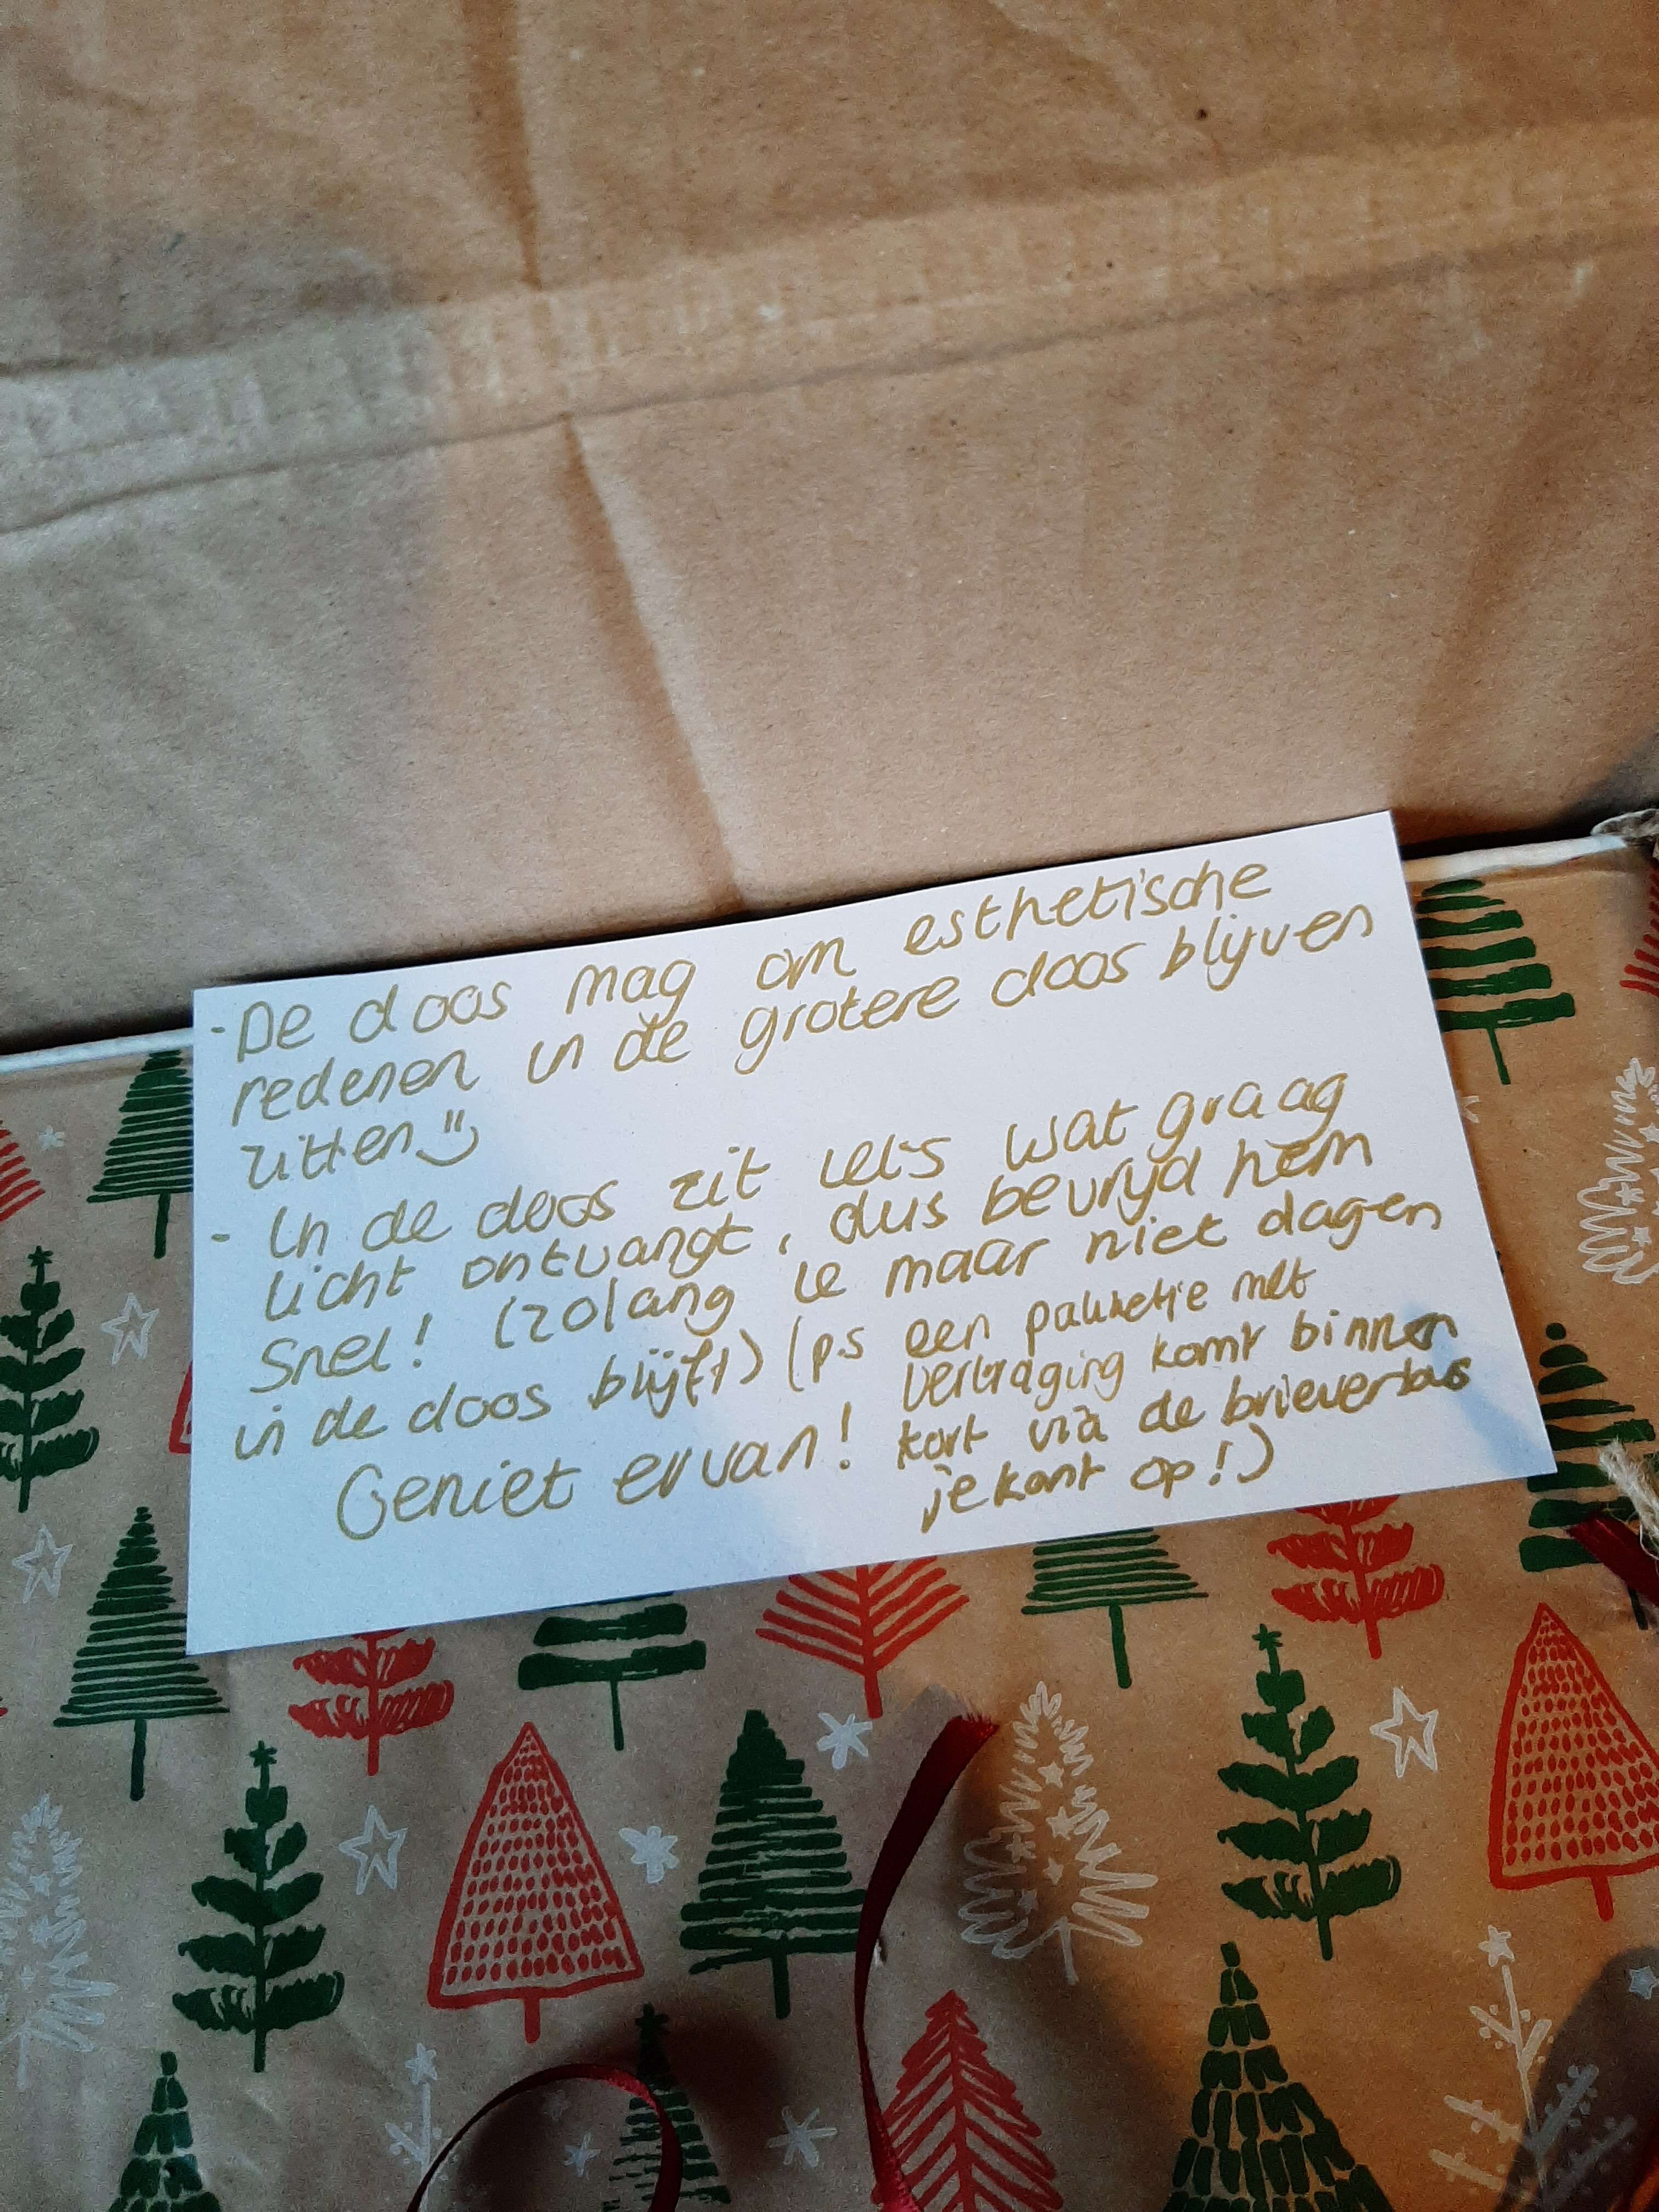 - De doos mag om esthetische
redenen in de grotere doos blijven
zitten
- In de doos zit iets wat graag
licht ontvangt, dus bevrijd hem
snel! (zolang ie maar niet dagen
in de doos blijft) (p.s een pakketje met
Geniet ervan! vertraging komt binnen
kort via de brievenbus
je kant op!)